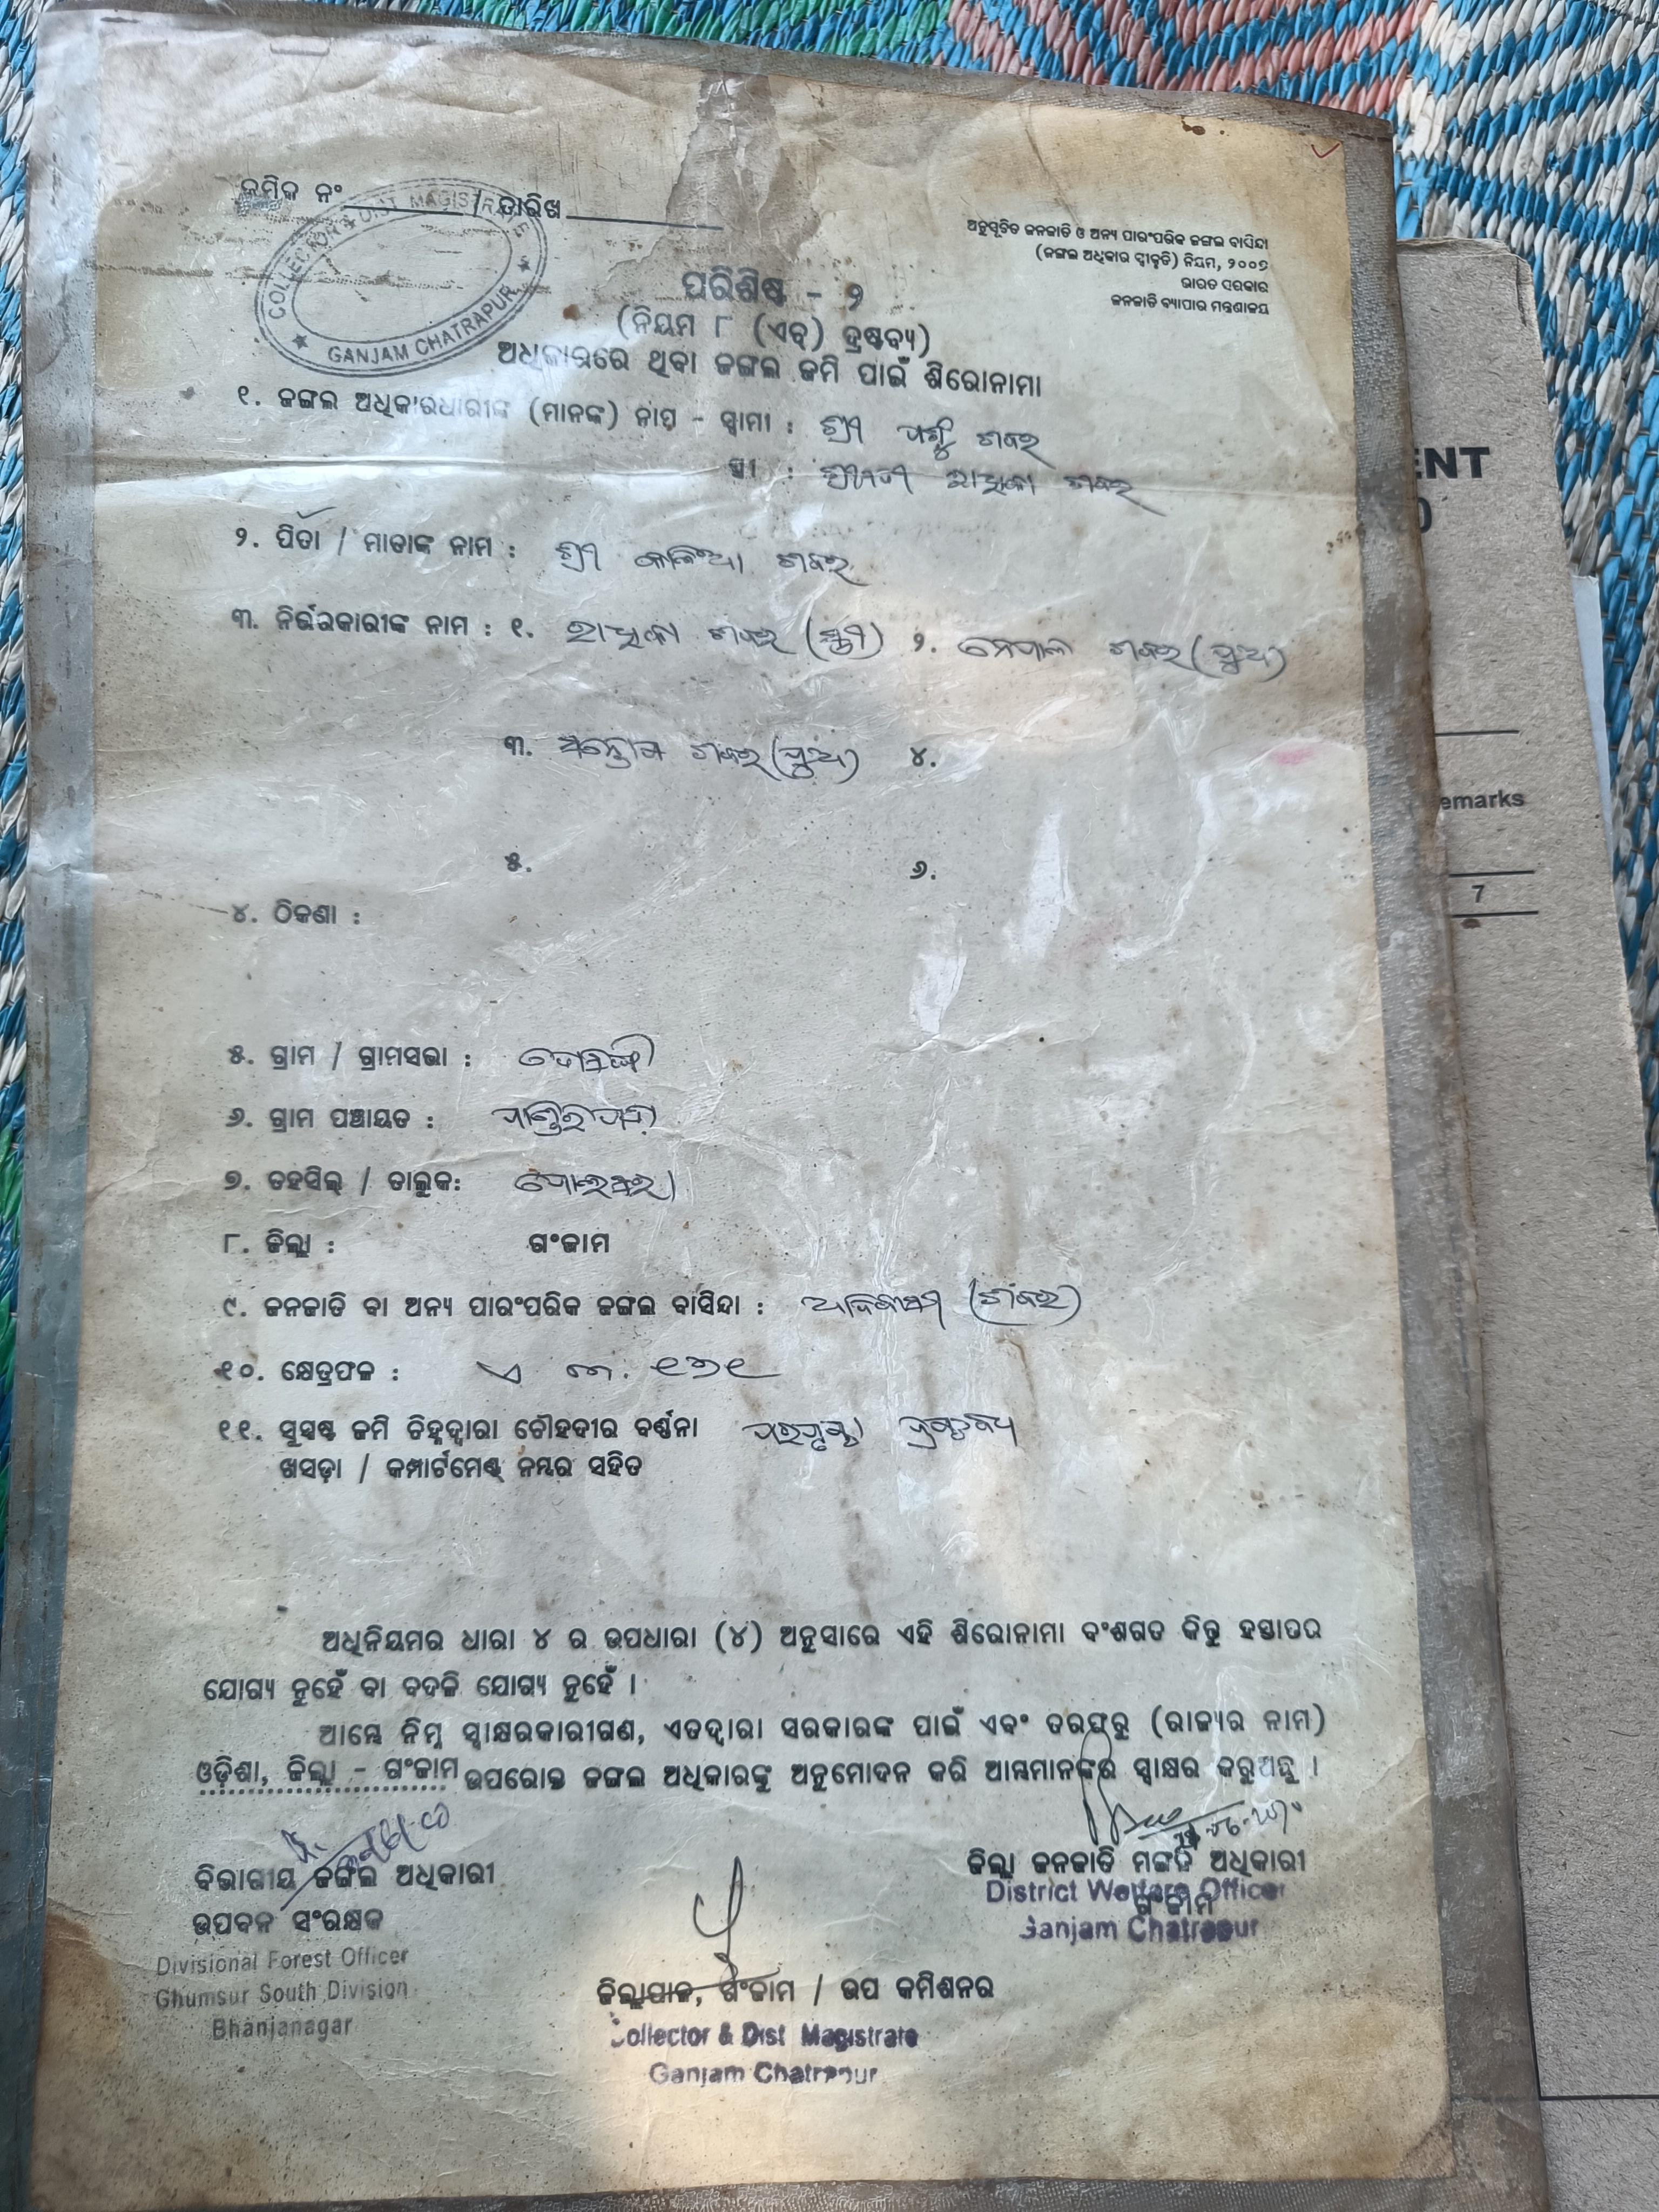 କ୍ରମିକ ନଂ / ତାରିଖ
COLLECTOR & DIST. MAGISTRATE
★ GANJAM CHATRAPUR ★
ଅନୁସୂଚିତ ଜନଜାତି ଓ ଅନ୍ୟ ପାରଂପରିକ ଜଙ୍ଗଲ ବାସିନ୍ଦା
(ଜଙ୍ଗଲ ଅଧିକାର ସ୍ୱୀକୃତି) ନିୟମ, ୨୦୦୭
ଭାରତ ସରକାର
ଜନଜାତି ବ୍ୟାପାର ମନ୍ତ୍ରଣାଳୟ
ପରିଶିଷ୍ଟ - ୨
(ନିୟମ ୮ (ଏଚ୍) ଦ୍ରଷ୍ଟବ୍ୟ)
ଅଧିକାରରେ ଥିବା ଜଙ୍ଗଲ ଜମି ପାଇଁ ଶିରୋନାମା
୧. ଜଙ୍ଗଲ ଅଧିକାରଧାରୀଙ୍କ (ମାନଙ୍କ) ନାମ - ସ୍ୱାମୀ : ଶ୍ରୀ ଶବର
ସ୍ତ୍ରୀ : ଶ୍ରୀମତୀ ରାଧିକା ଶବର
୨. ପିତା / ମାତାଙ୍କ ନାମ : ଶ୍ରୀ ଶବର
୩. ନିର୍ଭରକାରୀଙ୍କ ନାମ : ୧. ରାଧିକା ଶବର (ସ୍ତ୍ରୀ) ୨. ନେପାଳ ଶବର (ପୁଅ)
୩. ସନ୍ତୋଷ ଶବର (ପୁଅ) ୪.
୫. ୬.
୪. ଠିକଣା :
୫. ଗ୍ରାମ / ଗ୍ରାମସଭା :
୬. ଗ୍ରାମ ପଞ୍ଚାୟତ :
୭. ତହସିଲ୍ / ତାଲୁକ:
୮. ଜିଲ୍ଲା : ଗଂଜାମ
୯. ଜନଜାତି ବା ଅନ୍ୟ ପାରଂପରିକ ଜଙ୍ଗଲ ବାସିନ୍ଦା : (ଶବର)
୧୦. କ୍ଷେତ୍ରଫଳ :
୧୧. ସୁସ୍ପଷ୍ଟ ଜମି ଚିହ୍ନଦ୍ୱାରା ଚୌହଦୀର ବର୍ଣ୍ଣନା ପରପୃଷ୍ଠା ଦ୍ରଷ୍ଟବ୍ୟ
ଖସଡ଼ା / କମ୍ପାର୍ଟମେଣ୍ଟ୍ ନମ୍ବର ସହିତ
ଅଧିନିୟମର ଧାରା ୪ ର ଉପଧାରା (୪) ଅନୁସାରେ ଏହି ଶିରୋନାମା ବଂଶଗତ କିନ୍ତୁ ହସ୍ତାନ୍ତର
ଯୋଗ୍ୟ ନୁହେଁ ବା ବଦଳି ଯୋଗ୍ୟ ନୁହେଁ ।
ଆମ୍ଭେ ନିମ୍ନ ସ୍ୱାକ୍ଷରକାରୀଗଣ, ଏତଦ୍ୱାରା ସରକାରଙ୍କ ପାଇଁ ଏବଂ ତରଫରୁ (ରାଜ୍ୟର ନାମ)
ଓଡ଼ିଶା, ଜିଲ୍ଲା - ଗଂଜାମ ଉପରୋକ୍ତ ଜଙ୍ଗଲ ଅଧିକାରଙ୍କୁ ଅନୁମୋଦନ କରି ଆମ୍ଭମାନଙ୍କର ସ୍ୱାକ୍ଷର କରୁଅଛୁ ।
ବିଭାଗୀୟ ଜଙ୍ଗଲ ଅଧିକାରୀ
ଉପବନ ସଂରକ୍ଷକ
Divisional Forest Officer
Ghumsur South Division
Bhanjanagar
ଜିଲ୍ଲା ଜନଜାତି ମଙ୍ଗଳ ଅଧିକାରୀ
ଗଂଜାମ
District Welfare Officer
Ganjam Chatrapur
ଜିଲ୍ଲାପାଳ, ଗଂଜାମ / ଉପ କମିଶନର
Collector & Dist Magistrate
Ganjam Chatrapur
emarks
7